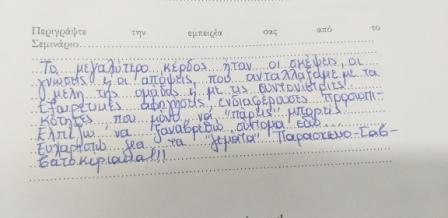 Περιγράψτε την εμπειρία σας από το
Σεμινάριο
Το μεγαλύτερο κέρδος ήταν οι σκέψεις, οι
γνώσεις ή οι απόψεις, που ανταλλάξαμε με τα
μέλη της ομάδας ή με τις συντονίστριες.
Εξαιρετικές αφηγήσεις, ενδιαφέρουσες προσωπι-
κότητες, που μόνο να "πάρεις" μπορείς!
Ελπίζω να ξαναβρεθώ σύντομα εδώ...
Ευχαριστώ για τα "γεμάτα" Παρασκευο-Σαβ-
βατοκύριακα!!!